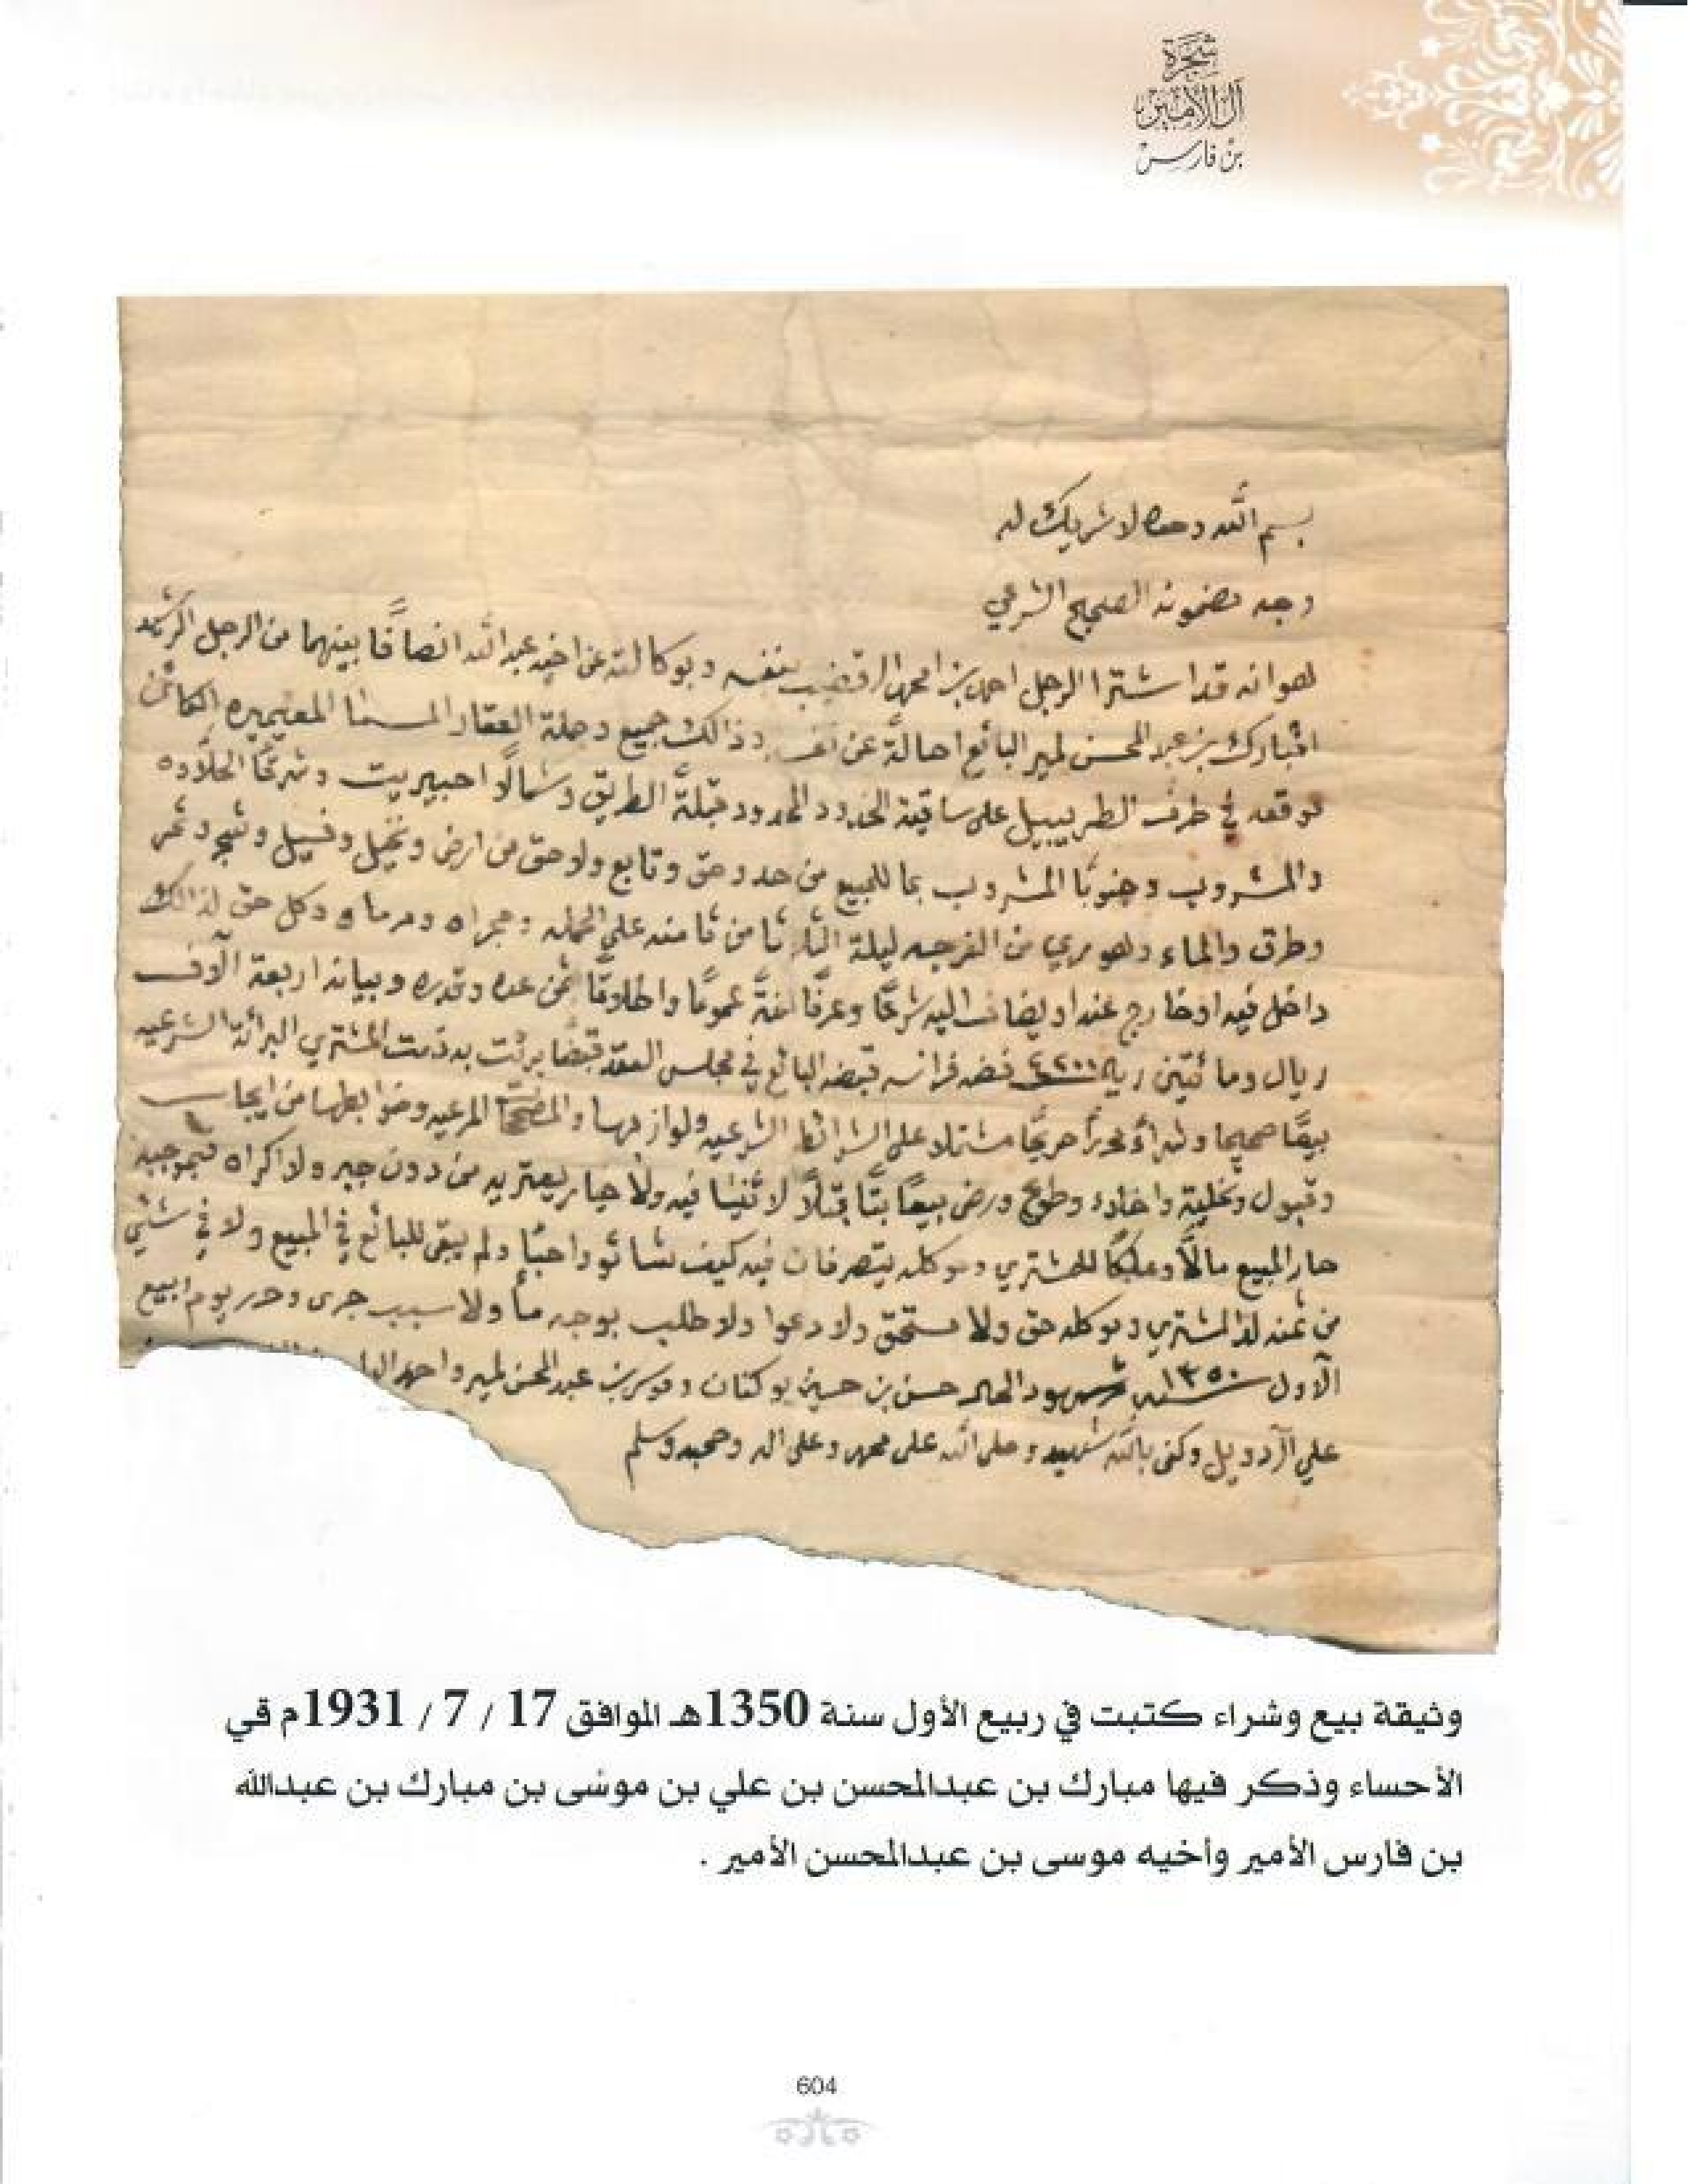 شجرة
آل الأمير
بن فارس
بسم الله وحده لا شريك له
وجه مضمونه الصحيح الشرعي
هو انه قد اشترا الرجل احمد بن امحمد الرقضيب بنفسه وبوكالته عن اخيه عبدالله انصافًا بينهما من الرجل الرشيد
امبارك بن عبد المحسن لمير البائع اصالةً عن نفسه وذالك جميع وجملة العقار المسما المعيميره الكائن
موقعه في طرف الطريبيل على ساقية الخدود المحدود قبلةً الطريق وشمالًا احبيريت وشرقًا الحلاوه
والمشروب وجنوبًا المشروب بما للمبيع من حد وحق وتابع ولاحق من ارض ونخيل وفسيل وشجر وثمر
وطرق والماء وهو مري من الفرجه ليلة ثامن ثامنه على الجمله ومجراه ومرماه وكل حق لذالك
داخل فيه او خارج عنه او يضاف اليه شرعًا وعرفًا لغةً عمومًا واطلاقًا ثمن عده وقدره وبيانه اربعة آلاف
ريال ومائتين ريال ٤٢٠٠ فضه فرانسه قبضه البائع في مجلس العقد قبضًا برئت به ذمت المشتري البرائة الشرعيه
بيعًا صحيحا وشراءً صريحًا مشتملا على الشرائط الشرعيه ولوازمها المرعيه وضوابطها من ايجاب
وقبول وتخلية واخلاء وطوع ورضى بيعًا بتًا بتلًا لا ثنيا فيه ولا خيار يعتريه من دون جبر ولا اكراه فبموجبه
صار المبيع مالًا وملكًا للمشتري وموكله يتصرفان فيه كيف شائو واحبًا ولم يبقى للبائع في المبيع ولا في شئي
من ثمنه لذالمشتري وموكله حق ولا مستحق ولا دعوا ولا طلب بوجه مأ ولا سبب جرى وحرر يوم ربيع
الآول سنه ١٣٥٠ شهود الحال حسن بن حسين بو كنان وموسى بن عبد المحسن لمير واحمد
علي آل دويل وكفى بالله شهيد وصلى الله على محمد وعلى اله وصحبه وسلم
وثيقة بيع وشراء كتبت في ربيع الأول سنة 1350هـ الموافق 17 / 7 / 1931م في
الأحساء وذكر فيها مبارك بن عبدالمحسن بن علي بن موسى بن مبارك بن عبدالله
بن فارس الأمير وأخيه موسى بن عبدالمحسن الأمير .
604